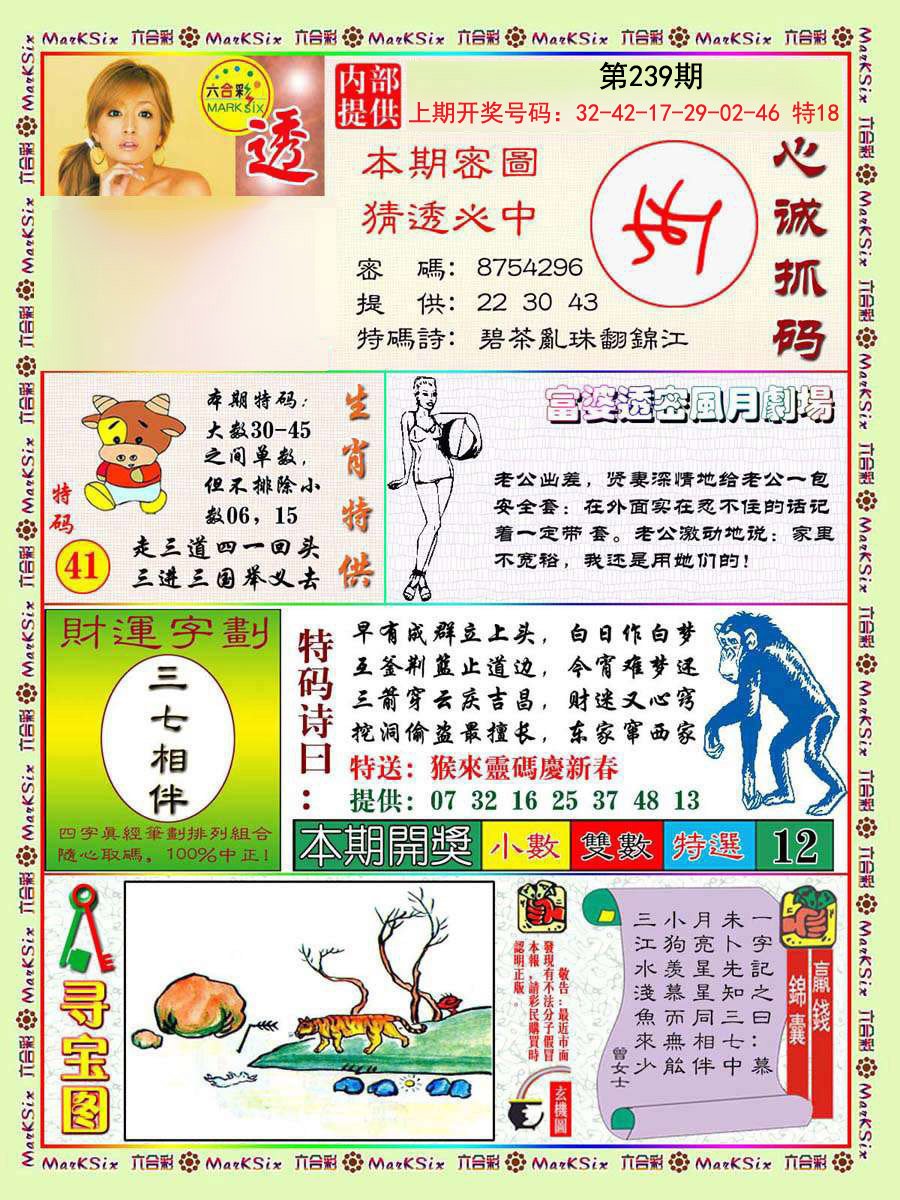 六合彩
MARK SIX
透
内部
提供
第239期
上期开奖号码：32-42-17-29-02-46 特18
本期密圖
猜透必中
密碼：8754296
提供：22 30 43
特碼詩：碧茶亂珠翻錦江
心诚抓码
本期特码：
大数30-45
之间单数，
但不排除小
数06，15
特码
41
走三道四一回头
三进三国举义去
生肖特供
富婆透密風月劇場
老公出差，贤妻深情地给老公一包
安全套：在外面实在忍不住的话记
着一定带 套。老公激动地说：家里
不宽裕，我还是用她们的！
財運字劃
三七相伴
四字真經筆劃排列組合
隨心取碼，100%中正！
特码诗曰：
早有成群立上头，白日作白梦
五釜荆篮止道边，今宵难梦还
三箭穿云庆吉昌，财迷又心窍
挖洞偷盗最擅长，东家窜西家
特送：猴來靈碼慶新春
提供：07 32 16 25 37 48 13
本期開獎
小數
雙數
特選
12
寻宝图
敬告：最近市面
發現有不法分子假冒
本報，請彩民購買時
認明正版。
玄機圖
贏錢
錦囊
一字記之曰：慕
朱卜先知三七中
月亮星星同相伴
小狗羡慕而無能
三江水淺魚來少
曾女士
MarKSix 六合彩 MarKSix 六合彩 MarKSix 六合彩 MarKSix 六合彩 MarKSix 六合彩